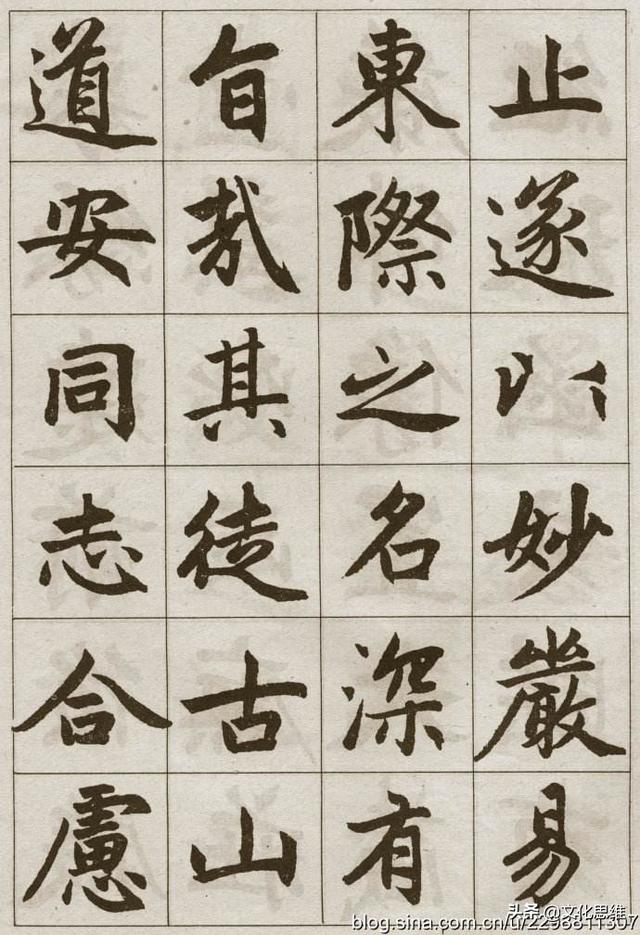 止遂以妙嚴易
東際之名深有
旨哉其徒古山
道安同志合慮
头条 @文化思维
blog.sina.com.cn/u/2298811307